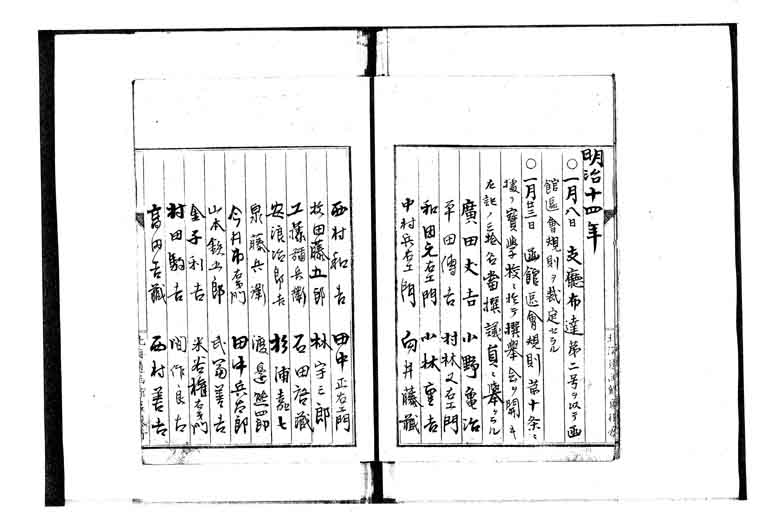 明治十四年
○一月八日 支廳布達第二号ヲ以テ函
館區會規則ヲ裁定セラル
○一月廿三日 函館區會規則第十条ニ
拠リ寶學校ニ於テ撰擧会ヲ開キ
左記ノ三拾名當撰議員ニ擧ケラル
廣田丈吉 小野亀治
平田傳吉 村林又右エ門
和田元右エ門 小林重吉
中村兵右エ門 向井藤藏
西村和吉 田中正右エ門
牧田藤五郎 林宇三郎
工藤彌兵衛 石田啓藏
安浪治郎吉 杉浦嘉七
泉藤兵衛 渡邊熊四郎
今井市右エ門 田中兵吉郎
山本鉄五郎 武冨善吉
金子利吉 米谷権右エ門
村田駒吉 岡作良右
西村善吉